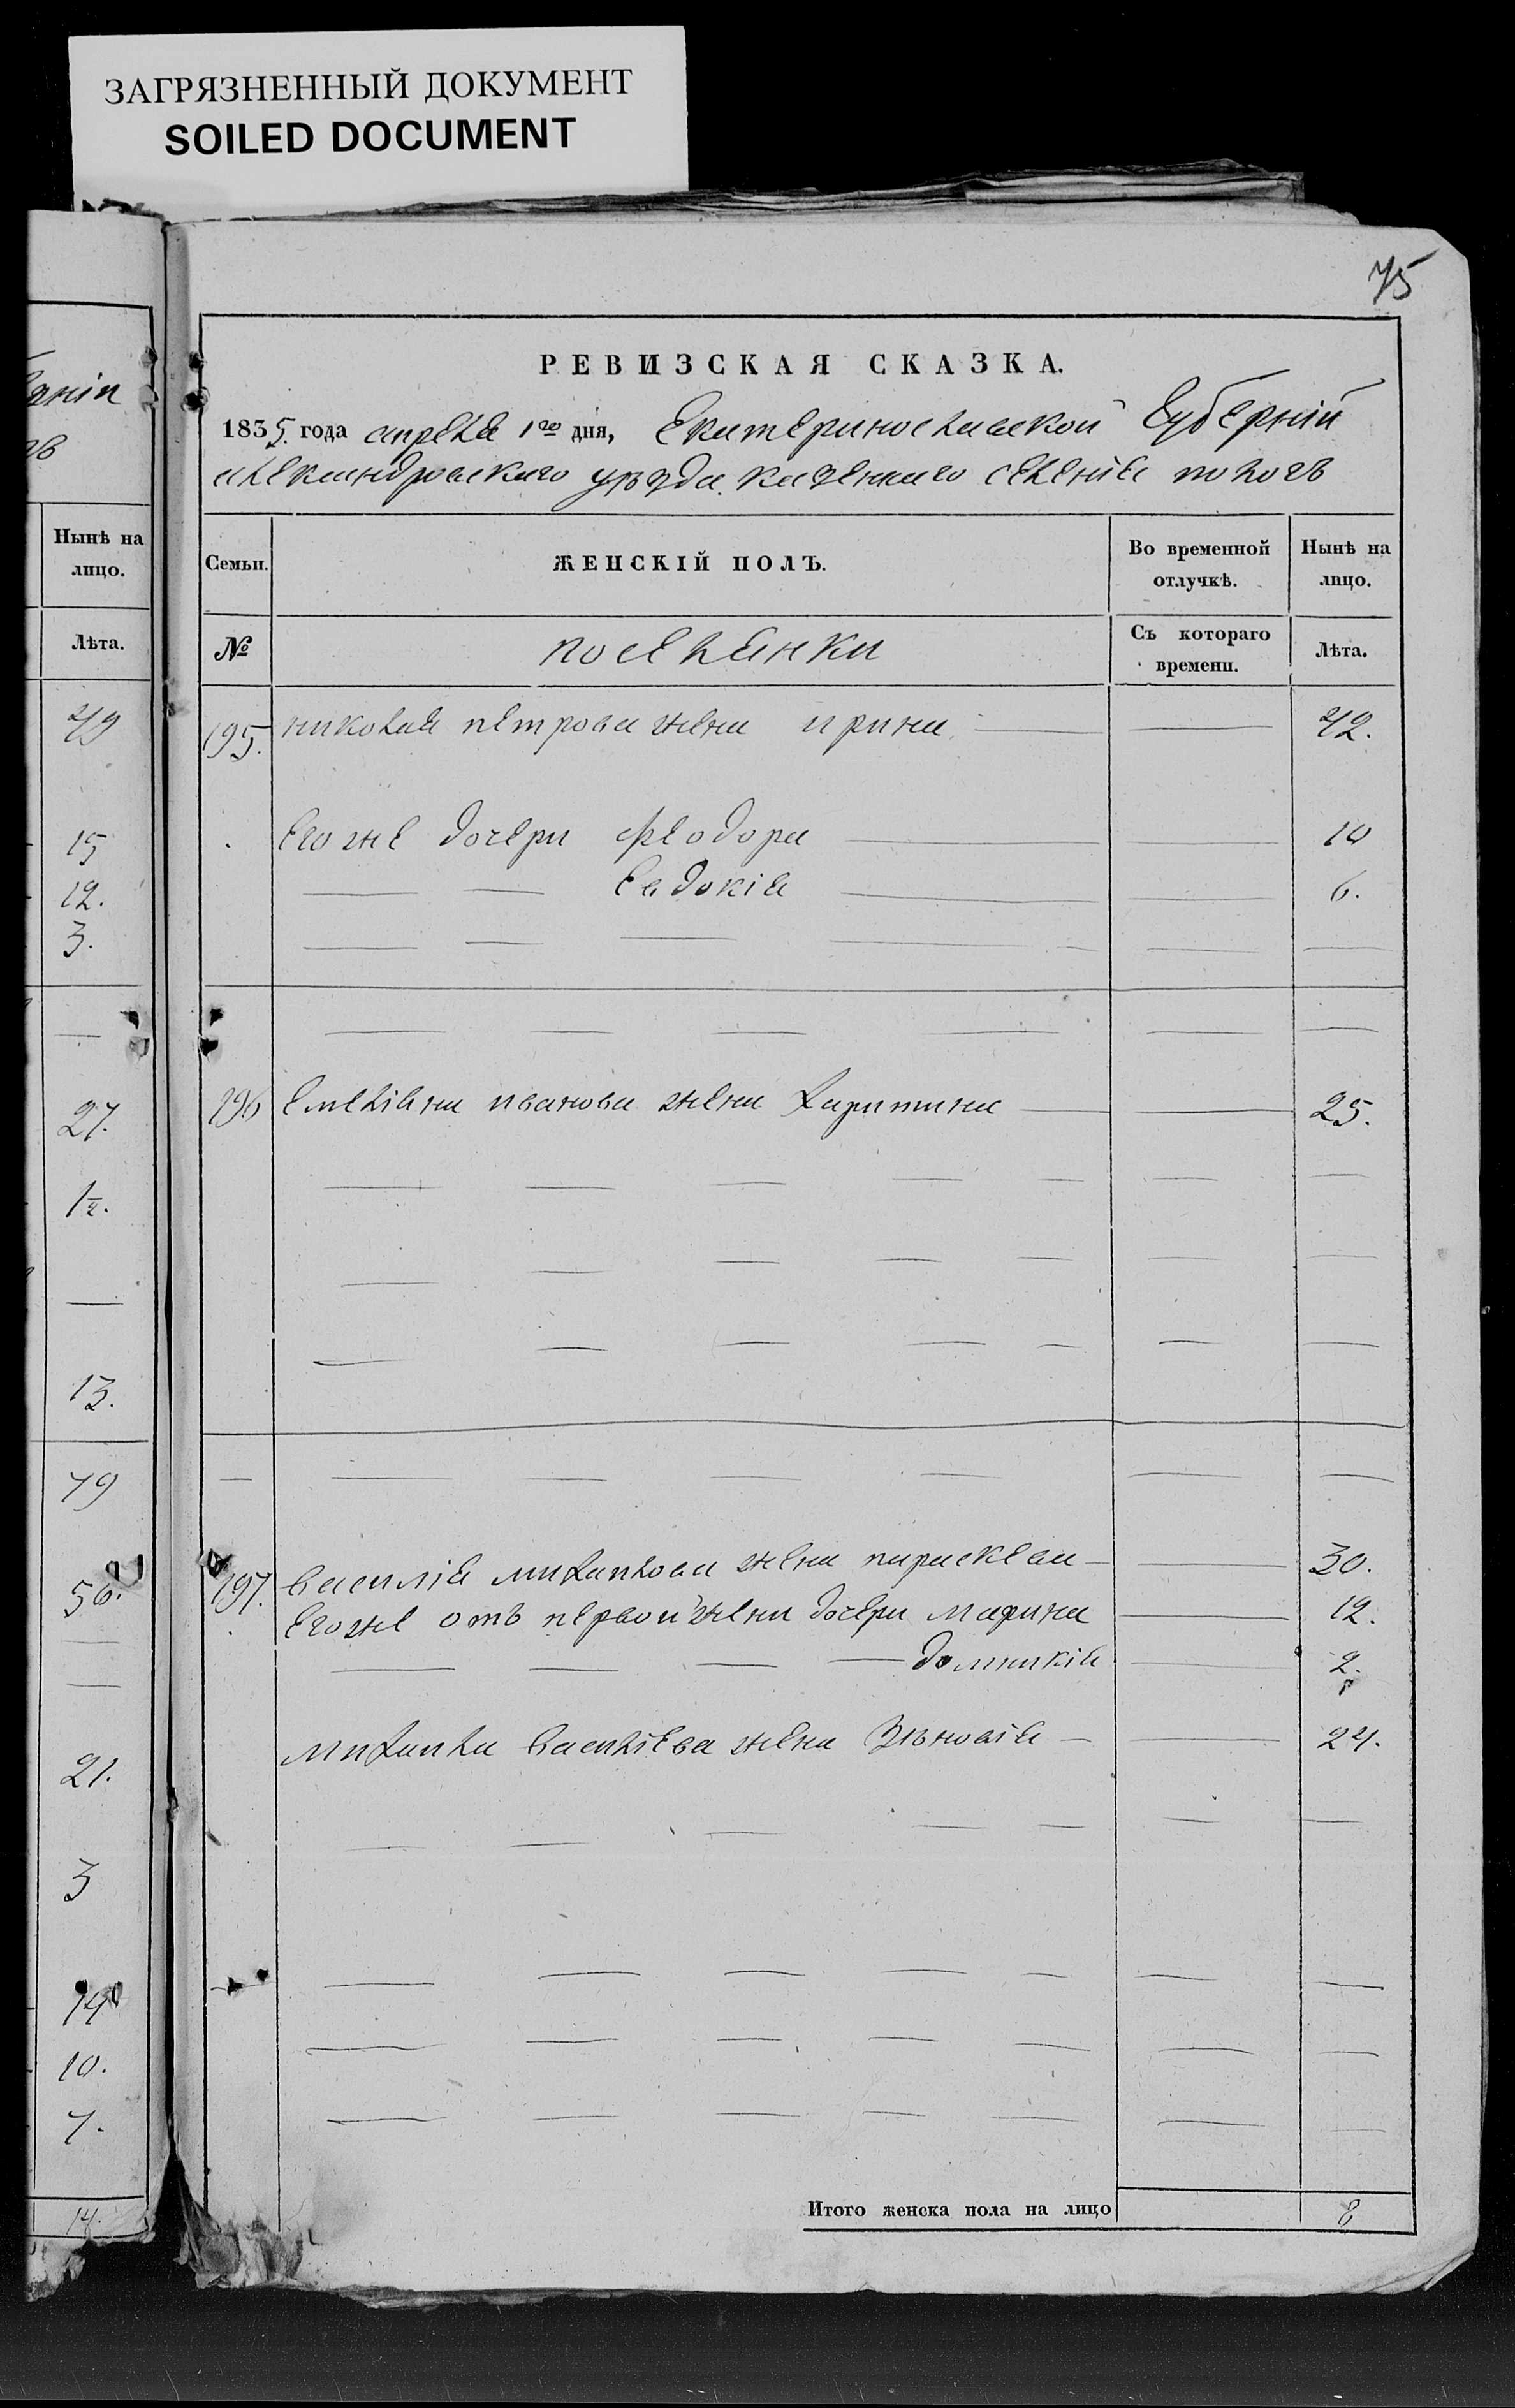 ЗАГРЯЗНЕННЫЙ ДОКУМЕНТ
SOILED DOCUMENT
75
РЕВИЗСКАЯ СКАЗКА.
1835. года апреля 1го дня, Екатеринославской Губерній
александровскаго уѣзда казеннаго селенія пологъ
Семьи.
ЖЕНСКІЙ ПОЛЪ.
Во временной отлучкѣ.
Нынѣ на лицо.
№
поселянки
Съ котораго времени.
Лѣта.
195. николая петрова жена ирина 42.
Егоже дочери феодора 10
Евдокія 6.
196 Емеліяна иванова жена Харитина 25.
197. Василія михайлова жена параскева 30.
Егоже отъ первой жены дочери марина 12.
домникія 2.
михайла васильева жена Зѣновія 24.
Итого женска пола на лицо 8
Нынѣ на
лицо.
Лѣта.
49
15
12.
3.
27.
1/2.
13.
79
56.
21.
3
19
10.
7.
14.